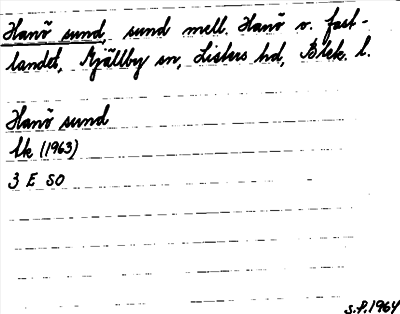 Hanö sund, sund mell. Hanö o. fast-
landet, Mjällby sn, Listers hd, Blek. l.
Hanö sund
Uk (1963)
3 E SO
S.P. 1964